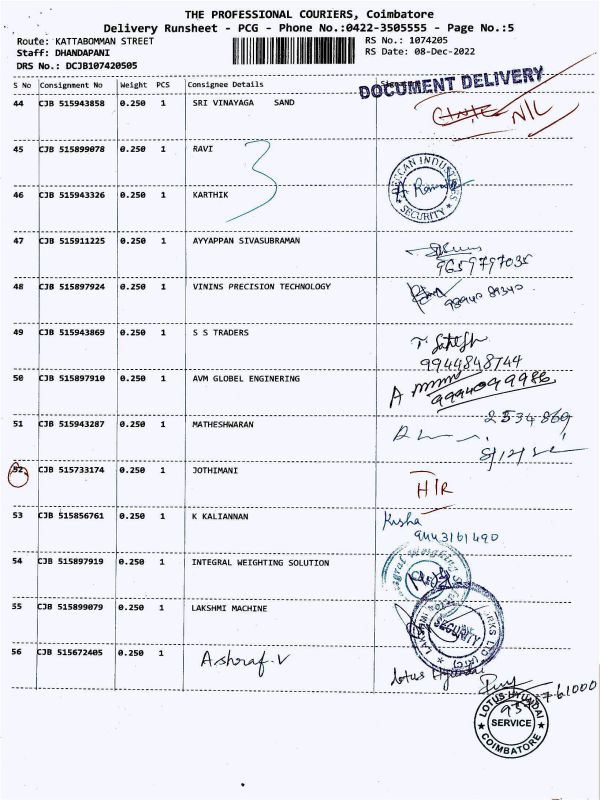 THE PROFESSIONAL COURIERS, Coimbatore
Delivery Runsheet - PCG - Phone No.:0422-3505555 - Page No.:5
Route: KATTABOMMAN STREET RS No.: 1074205
Staff: DHANDAPANI RS Date: 08-Dec-2022
DRS No.: DCJB107420505
S No Consignment No Weight PCS Consignee Details
DOCUMENT DELIVERY
44 CJB 515943858 0.250 1 SRI VINAYAGA SAND
N/L
45 CJB 515899078 0.250 1 RAVI
3
46 CJB 515943326 0.250 1 KARTHIK
SECURITY
47 CJB 515911225 0.250 1 AYYAPPAN SIVASUBRAMAN
9659797035
48 CJB 515897924 0.250 1 VININS PRECISION TECHNOLOGY
98940 89340
49 CJB 515943869 0.250 1 S S TRADERS
9944848744
50 CJB 515897910 0.250 1 AVM GLOBEL ENGINERING
9994099986
51 CJB 515943287 0.250 1 MATHESHWARAN
2534869
52 CJB 515733174 0.250 1 JOTHIMANI
H/R
53 CJB 515856761 0.250 1 K KALIANNAN
Kisha
9443161490
54 CJB 515897919 0.250 1 INTEGRAL WEIGHTING SOLUTION
55 CJB 515899079 0.250 1 LAKSHMI MACHINE
SECURITY
56 CJB 515672405 0.250 1 Ashraf.V
Lotus Hyundai
761000
LOTUS HYUNDAI
93
SERVICE
COIMBATORE